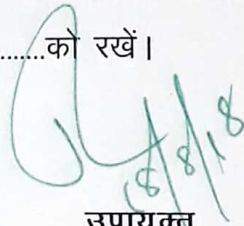 ........को रखें।
8/8/18
उपायुक्त